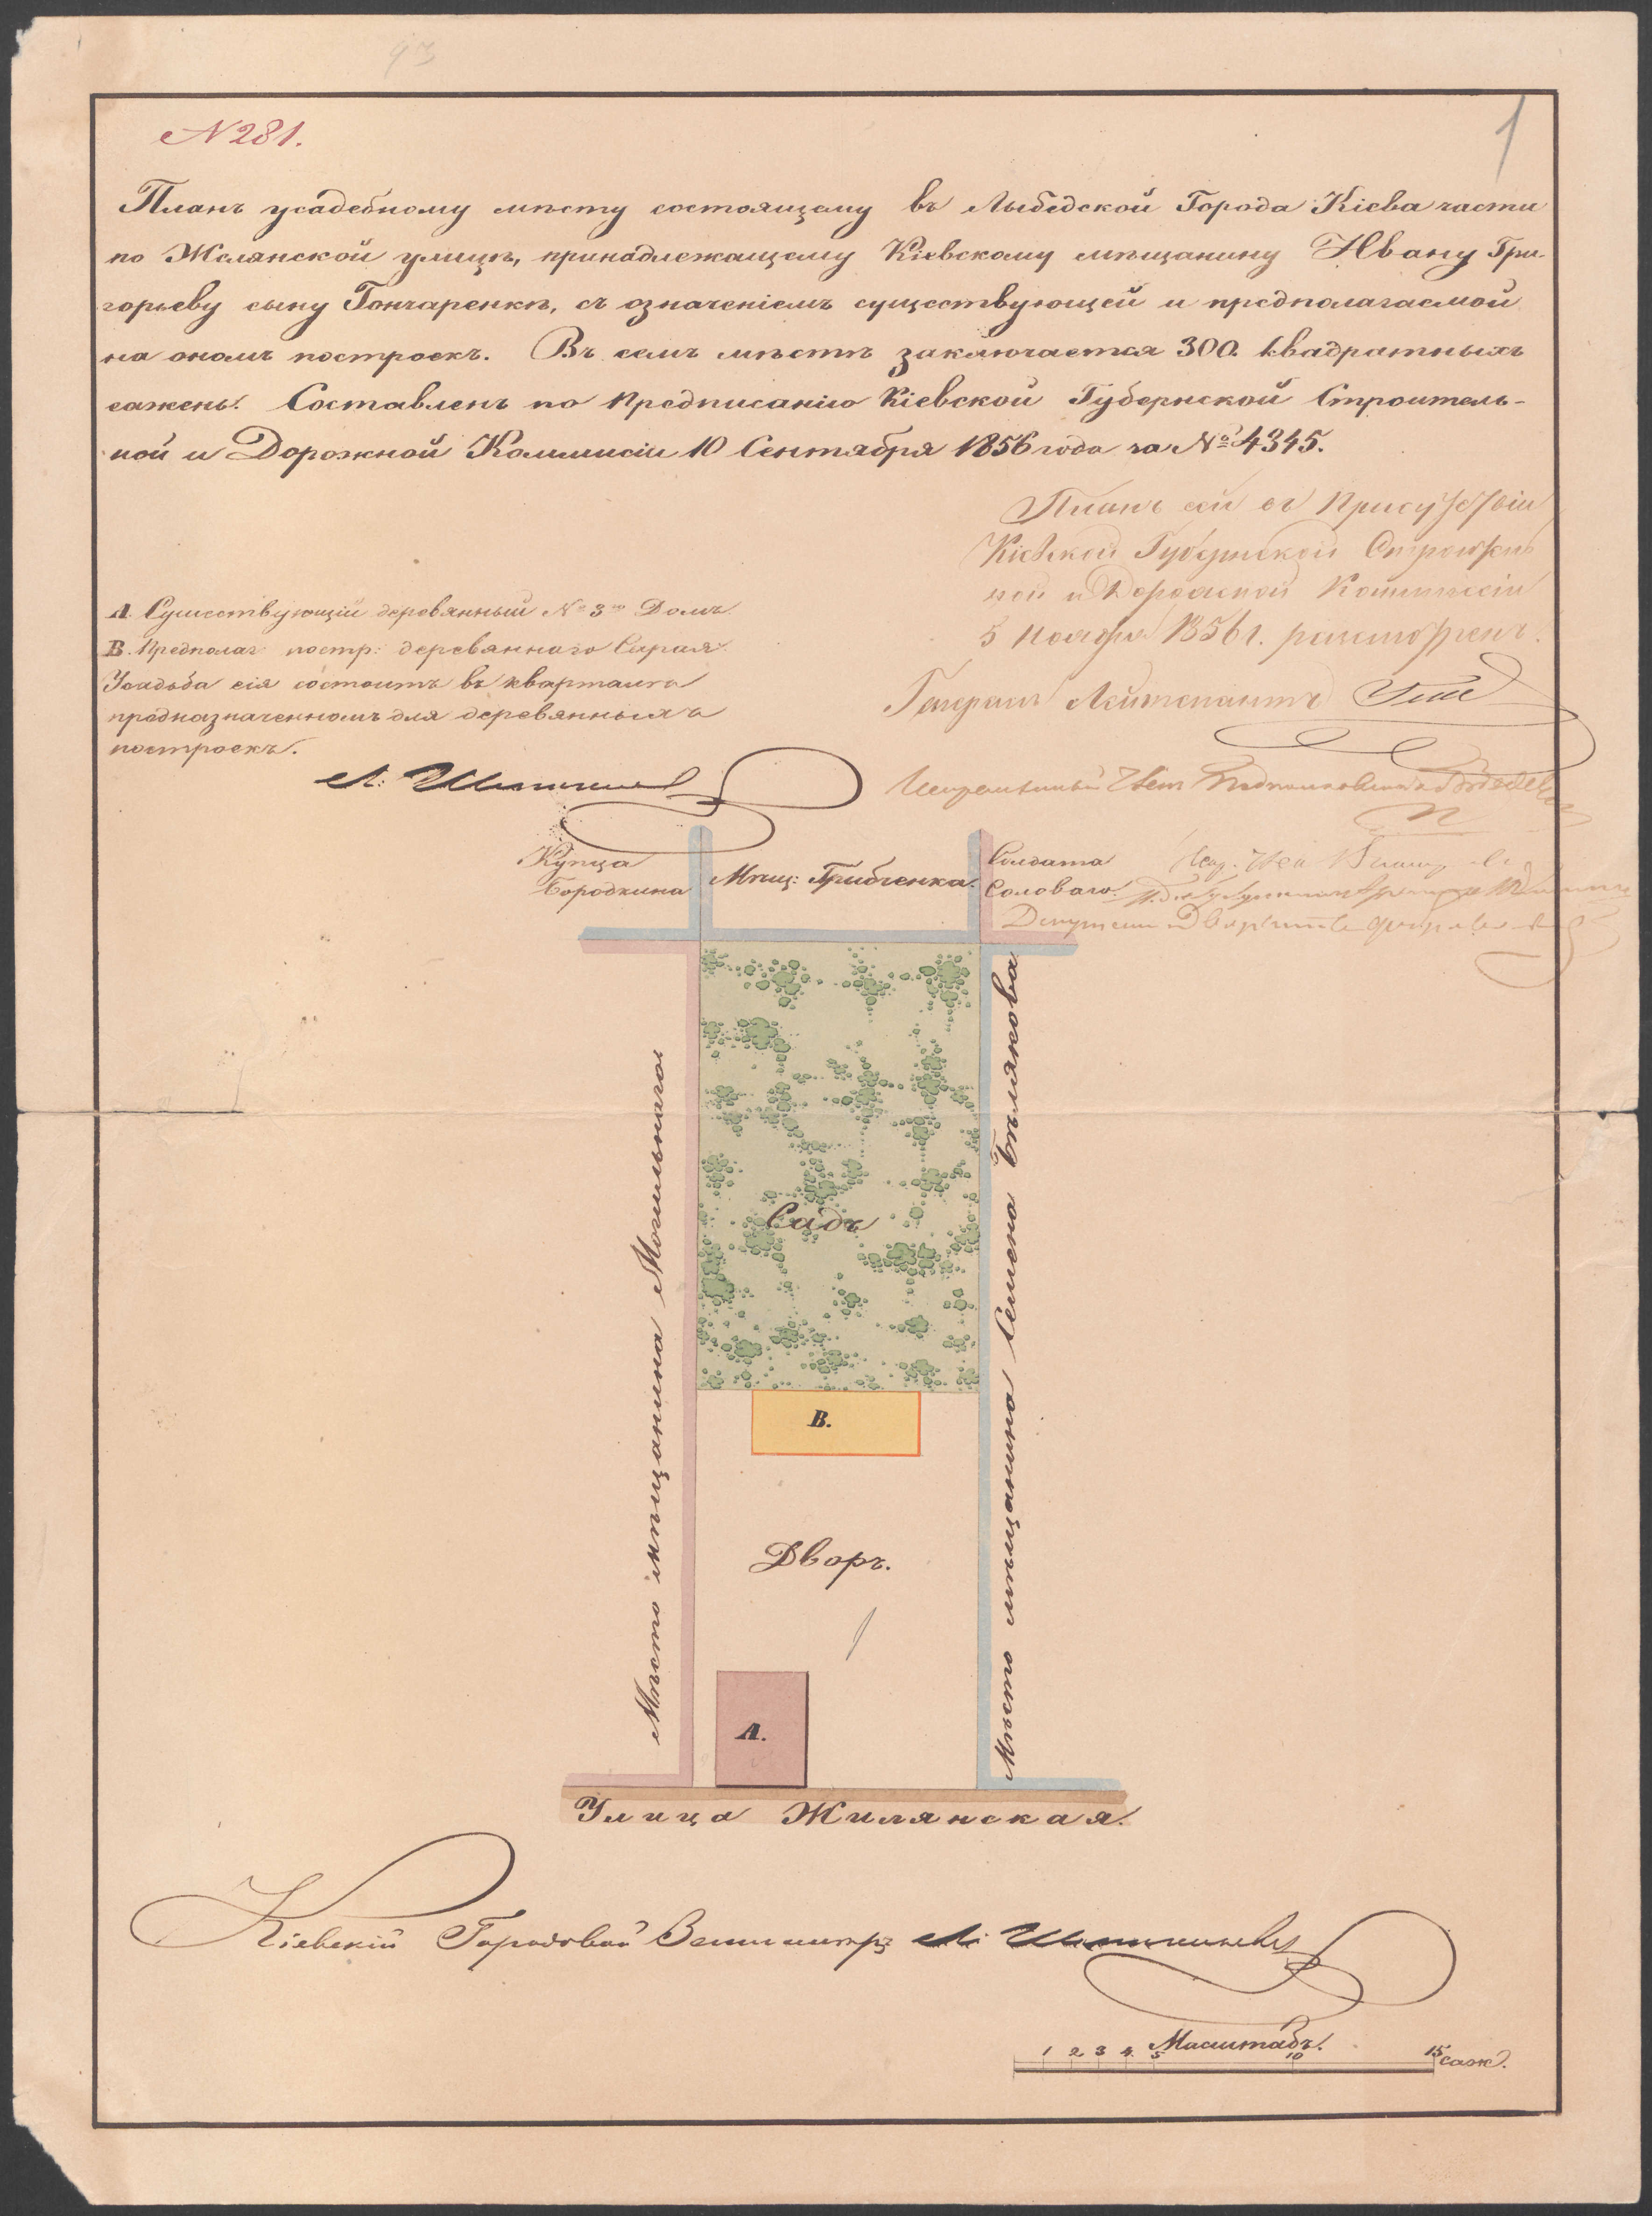 93
№ 281.
1
Планъ усадебному мѣсту состоящему въ Лыбедской Города Кіева части
по Желянской улицѣ, принадлежащему Кіевскому мѣщанину Ивану Гри-
горьеву сыну Гончаренкѣ, съ означеніемъ существующей и предполагаемой
на ономъ построекъ. Въ семъ мѣстѣ заключается 300 квадратныхъ
сажень. Составленъ по предписанію Кіевской Губернской Строитель-
ной и Дорожной Коммисіи 10 Сентября 1856 года за № 4345.
Планъ сей въ Присутствіи
Кіевской Губернской Строитель
ной и Дорожной Коммиссіи
5 Ноября 1856 г. разсмотренъ.
Генералъ Лейтенантъ
А. Существующій деревянный № 3го Домъ.
В. Предполаг: постр: деревяннаго Сарая.
Усадьба сія состоитъ въ кварталѣ
предназначенномъ для деревянныхъ
построекъ.
Купца
Бородкина
Мѣщ: Грибченка.
Солдата
Соловаго.
Мѣсто мѣщанина Могильнаго
Мѣсто мѣщанина Семена Бѣлякова
Садъ
В.
Дворъ.
А.
Улица Жилянская.
Кіевскій Городовой Землемѣръ
Масштабъ.
1 2 3 4 5 10 15 саж.